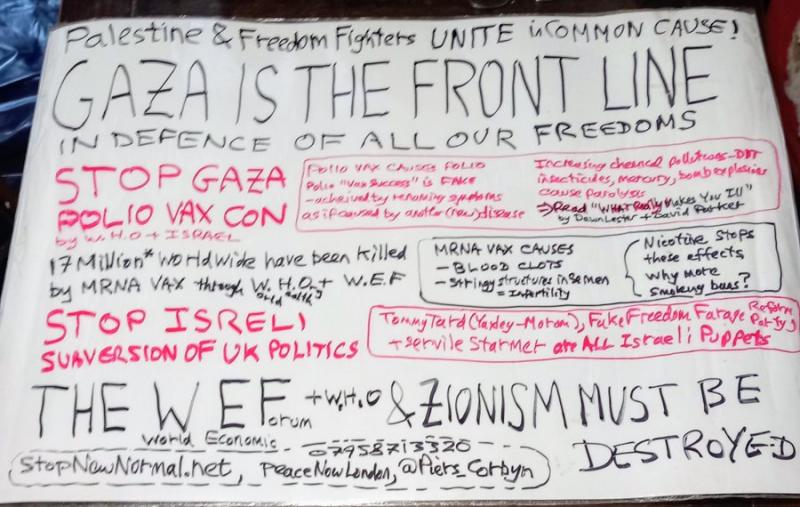 Palestine & Freedom Fighters UNITE in COMMON CAUSE!
GAZA IS THE FRONT LINE
IN DEFENCE OF ALL OUR FREEDOMS
STOP GAZA
POLIO VAX CON
by W.H.O + ISRAEL
Polio VAX CAUSES POLIO
Polio "Vax Success" is FAKE
- acheived by renaming symptoms
as if caused by another (new) disease
Increasing chemical pollutions - DDT
insecticides, mercury, bomb explosions
cause paralysis
⇒ Read "What Really Makes You Ill"
by Dawn Lester + David Parker
17 Million* Worldwide have been killed
by MRNA VAX through W.H.O. + W.E.F
MRNA VAX CAUSES
- BLOOD CLOTS
- Stringy structures in Semen
= Infertility
Nicotine Stops
these effects,
Why more
Smoking bans?
STOP ISRELI
SUBVERSION OF UK POLITICS
Tommy Tard (Yaxley-Moron), Fake Freedom Farage Reform Party,
+ servile Starmer are ALL Israeli Puppets
THE W EForum + W.H.O & ZIONISM MUST BE
World Economic
DESTROYED
07958713320
StopNewNormal.net, PeaceNowLondon, @Piers_Corbyn